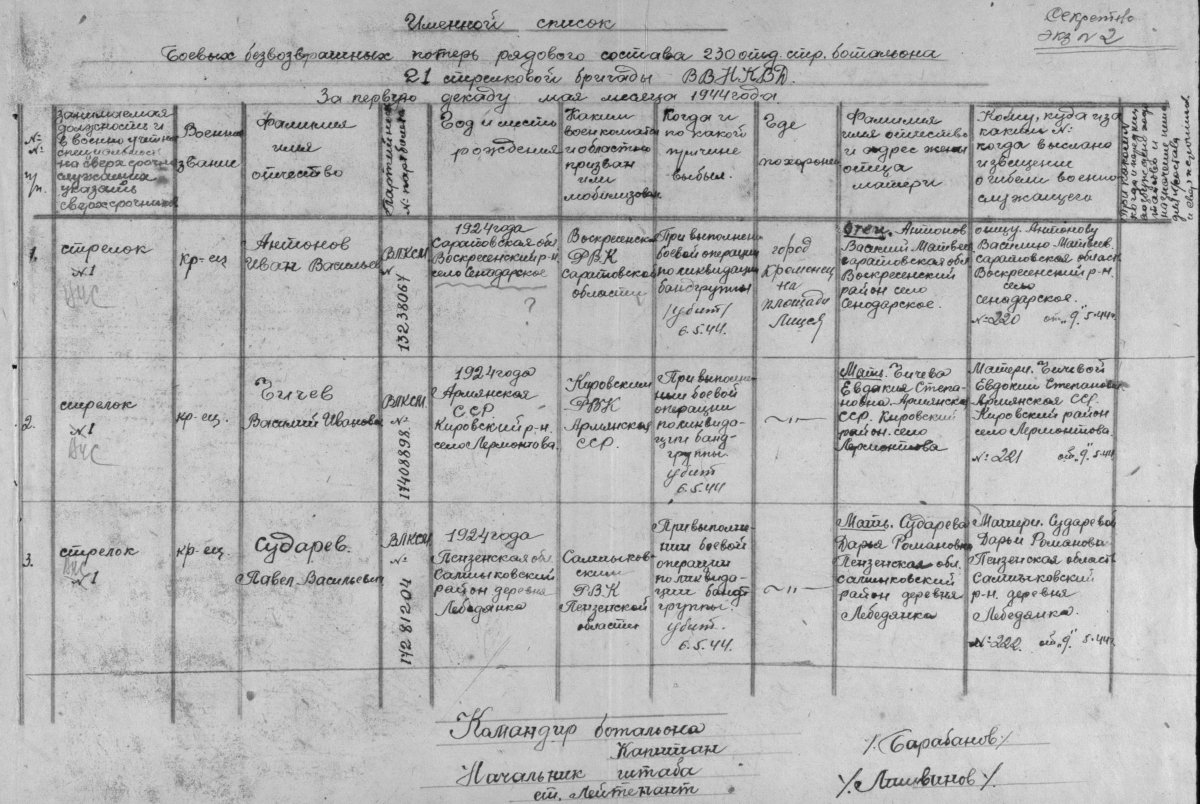 Секретно
Экз N 2
Именной список
боевых безвозвратных потерь рядового состава 230 отд. стр. ботальона
21 стрелковой бригады ВВНКВД.
За первую декаду мая месяца 1944 года
№№ п/п.
занимаемая
должность и
военно учетная
на сверхсрочно
служащих
указать
сверхсрочник
Военное
звание
Фамилия
имя
отчество
Партийность
№ партбилета
Год и место
рождения
Каким
военкоматом
и области
призван
или
мобилизован
Когда и
по какой
причине
выбыл.
Где
похоронен
Фамилия
имя отчество
и адрес жены
отца
матери
Кому, куда и за
каким №
когда выслано
извещении
о гибели военно-
служащего
1.
стрелок
№1
кр-ец
Антонов
Иван Васильев
ВЛКСМ
№
13238067
1924 года
Саратовская обл
Воскресенский р-н.
село Сенодарское
?
Воскресенск
РВК
Саратовской
области
При выполнен
боевой операции
по ликвидации
бандгруппы
/убит/
6.5.44.
город
Кременец
на
площади
Лицея
Отец. Антонов
Василий Матвеев
Саратовская обл
Воскресенский
район село
Сенодарское.
отцу. Антонову
Василию Матвеев.
Саратовская област
Воскресенский р-н.
село
сенодарское.
№220 от „9" 5.44г.
2.
стрелок
№1
кр-ец.
Чичев
Василий Иванови
ВЛКСМ
№
17408898.
1924 года
Армянская
ССР
Кировский р-н.
село Лермонтова.
Кировским
РВК
Армянская
ССР.
При выполне-
ным боевой
операции
по ликвида-
ции банд-
группы
убит
6.5.44
—"—
Мать. Чичева
Евдакия Степа-
новна Армянска
ССР. Кировский
район. село
Лермонтова
Матери. Чичевой
Евдокии Степановн
Армянская ССР.
Кировский район
село Лермонтова.
№221 от „9" 5.44
3.
стрелок
№1
кр-ец.
Сударев.
Павел. Васильевич
ВЛКСМ
№
17281204
1924 года
Пензенская обл
Салтыковский
район деревня
Лебедянка
Салтыков-
ским
РВК
Пензенской
области
При выполне-
нии боевой
операции
по ликвида-
ции банд
группы.
убит.
6.5.44.
—"—
Мать. Сударева
Дарья Романовн
Пензенская обл.
Салтыковский
район деревня
Лебедянка
Матери. Сударевой
Дарьи Романовн
Пензенская област
Салтыковский
р-н. деревня
Лебедянка.
№222. от „9" 5.44г
Командир ботальона
Капитан
/.Барабанов./
Начальник штаба
ст. Лейтенант
/.Литвинов./